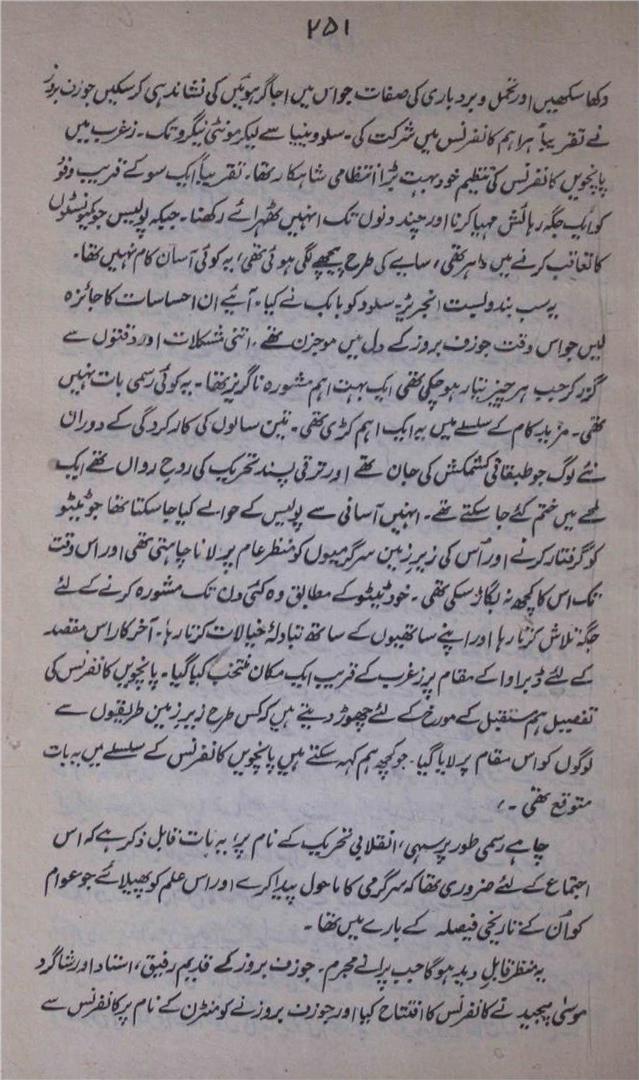 ۲۵۱
دکھا سکھیں اور تحمل و بردباری کی صفات جو اس میں اجاگر ہوئیں کی نشاندہی کر سکیں جوزف بروز
نے تقریباً ہر اہم کانفرنس میں شرکت کی۔ سلووینیا سے لیکر مونٹی نیگرو تک۔ زغرب میں
پانچویں کانفرنس کی تنظیم خود بہت بڑا انتظامی شاہکار تھا۔ تقریباً ایک سو کے قریب وفود
کو ایک جگہ رہائش مہیا کرنا اور چند دنوں تک انہیں ٹھہرائے رکھنا۔ جبکہ پولیس جو کمیونسٹوں
کا تعاقب کرنے میں ماہر تھی، سایے کی طرح پیچھے لگی ہوئی تھی، یہ کوئی آسان کام نہیں تھا۔
یہ سب بندوبست انجریز۔ سلود کو بابک نے کیا۔ آئیے ان احساسات کا جائزہ
لیں جو اس وقت جوزف بروز کے دل میں موجزن تھے۔ اتنی مشکلات اور دقتوں سے
گزر کر جب ہر چیز تیار ہو چکی تھی ایک بہت اہم مشورہ ناگزیر تھا۔ یہ کوئی رسمی بات نہیں
تھی۔ مزید کام کے سلسلے میں یہ ایک اہم کڑی تھی۔ تین سالوں کی کارکردگی کے دوران
نئے لوگ جو طبقاتی کشمکش کی جان تھے اور ترقی پسند تحریک کی روح رواں تھے ایک
لمحے میں ختم کئے جا سکتے تھے۔ انہیں آسانی سے پولیس کے حوالے کیا جا سکتا تھا جو ٹیٹو
کو گرفتار کرنے اور اُس کی زیر زمین سرگرمیوں کو منظر عام پر لانا چاہتی تھی اور اس وقت
تک اس کا کچھ نہ بگاڑ سکی تھی۔ خود ٹیٹو کے مطابق وہ کئی دن تک مشورہ کرنے کے لئے
جگہ تلاش کرتا رہا اور اپنے ساتھیوں کے ساتھ تبادلۂ خیالات کرتا رہا۔ آخر کار اس مقصد
کے لئے ڈبراوا کے مقام پر زغرب کے قریب ایک مکان منتخب کیا گیا۔ پانچویں کانفرنس کی
تفصیل ہم مستقبل کے مورخ کے لئے چھوڑ دیتے ہیں کہ کس طرح زیر زمین طریقوں سے
لوگوں کو اس مقام پر لایا گیا۔ جو کچھ ہم کہہ سکتے ہیں پانچویں کانفرنس کے سلسلے میں یہ بات
متوقع تھی۔،
چاہے رسمی طور پر سہی، انقلابی تحریک کے نام پر، یہ بات قابل ذکر ہے کہ اس
اجتماع کے لئے ضروری تھا کہ سرگرمی کا ماحول پیدا کرے اور اس علم کو پھیلائے جو عوام
کو اُن کے تاریخی فیصلہ کے بارے میں تھا۔
یہ منظر قابل دید ہو گا جب پرانے مجرم۔ جوزف بروز کے قدیم رفیق، استاد اور شاگرد
موسیٰ پیجید نے کانفرنس کا افتتاح کیا اور جوزف بروز نے کومنٹرن کے نام پر کانفرنس سے